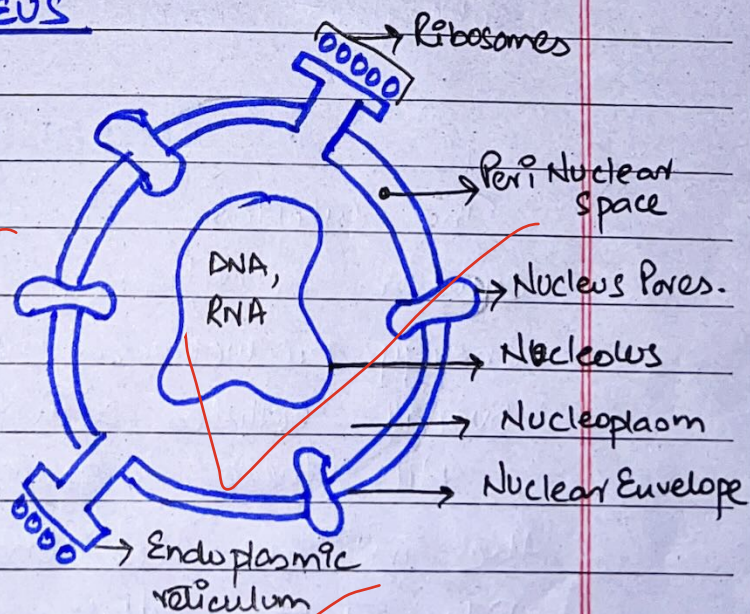 EUS
Ribosomes
Peri Nuclear
space
DNA,
RNA
Nucleus Pores.
Nucleolus
Nucleoplaom
Nuclear Envelope
Endoplasmic
reticulum